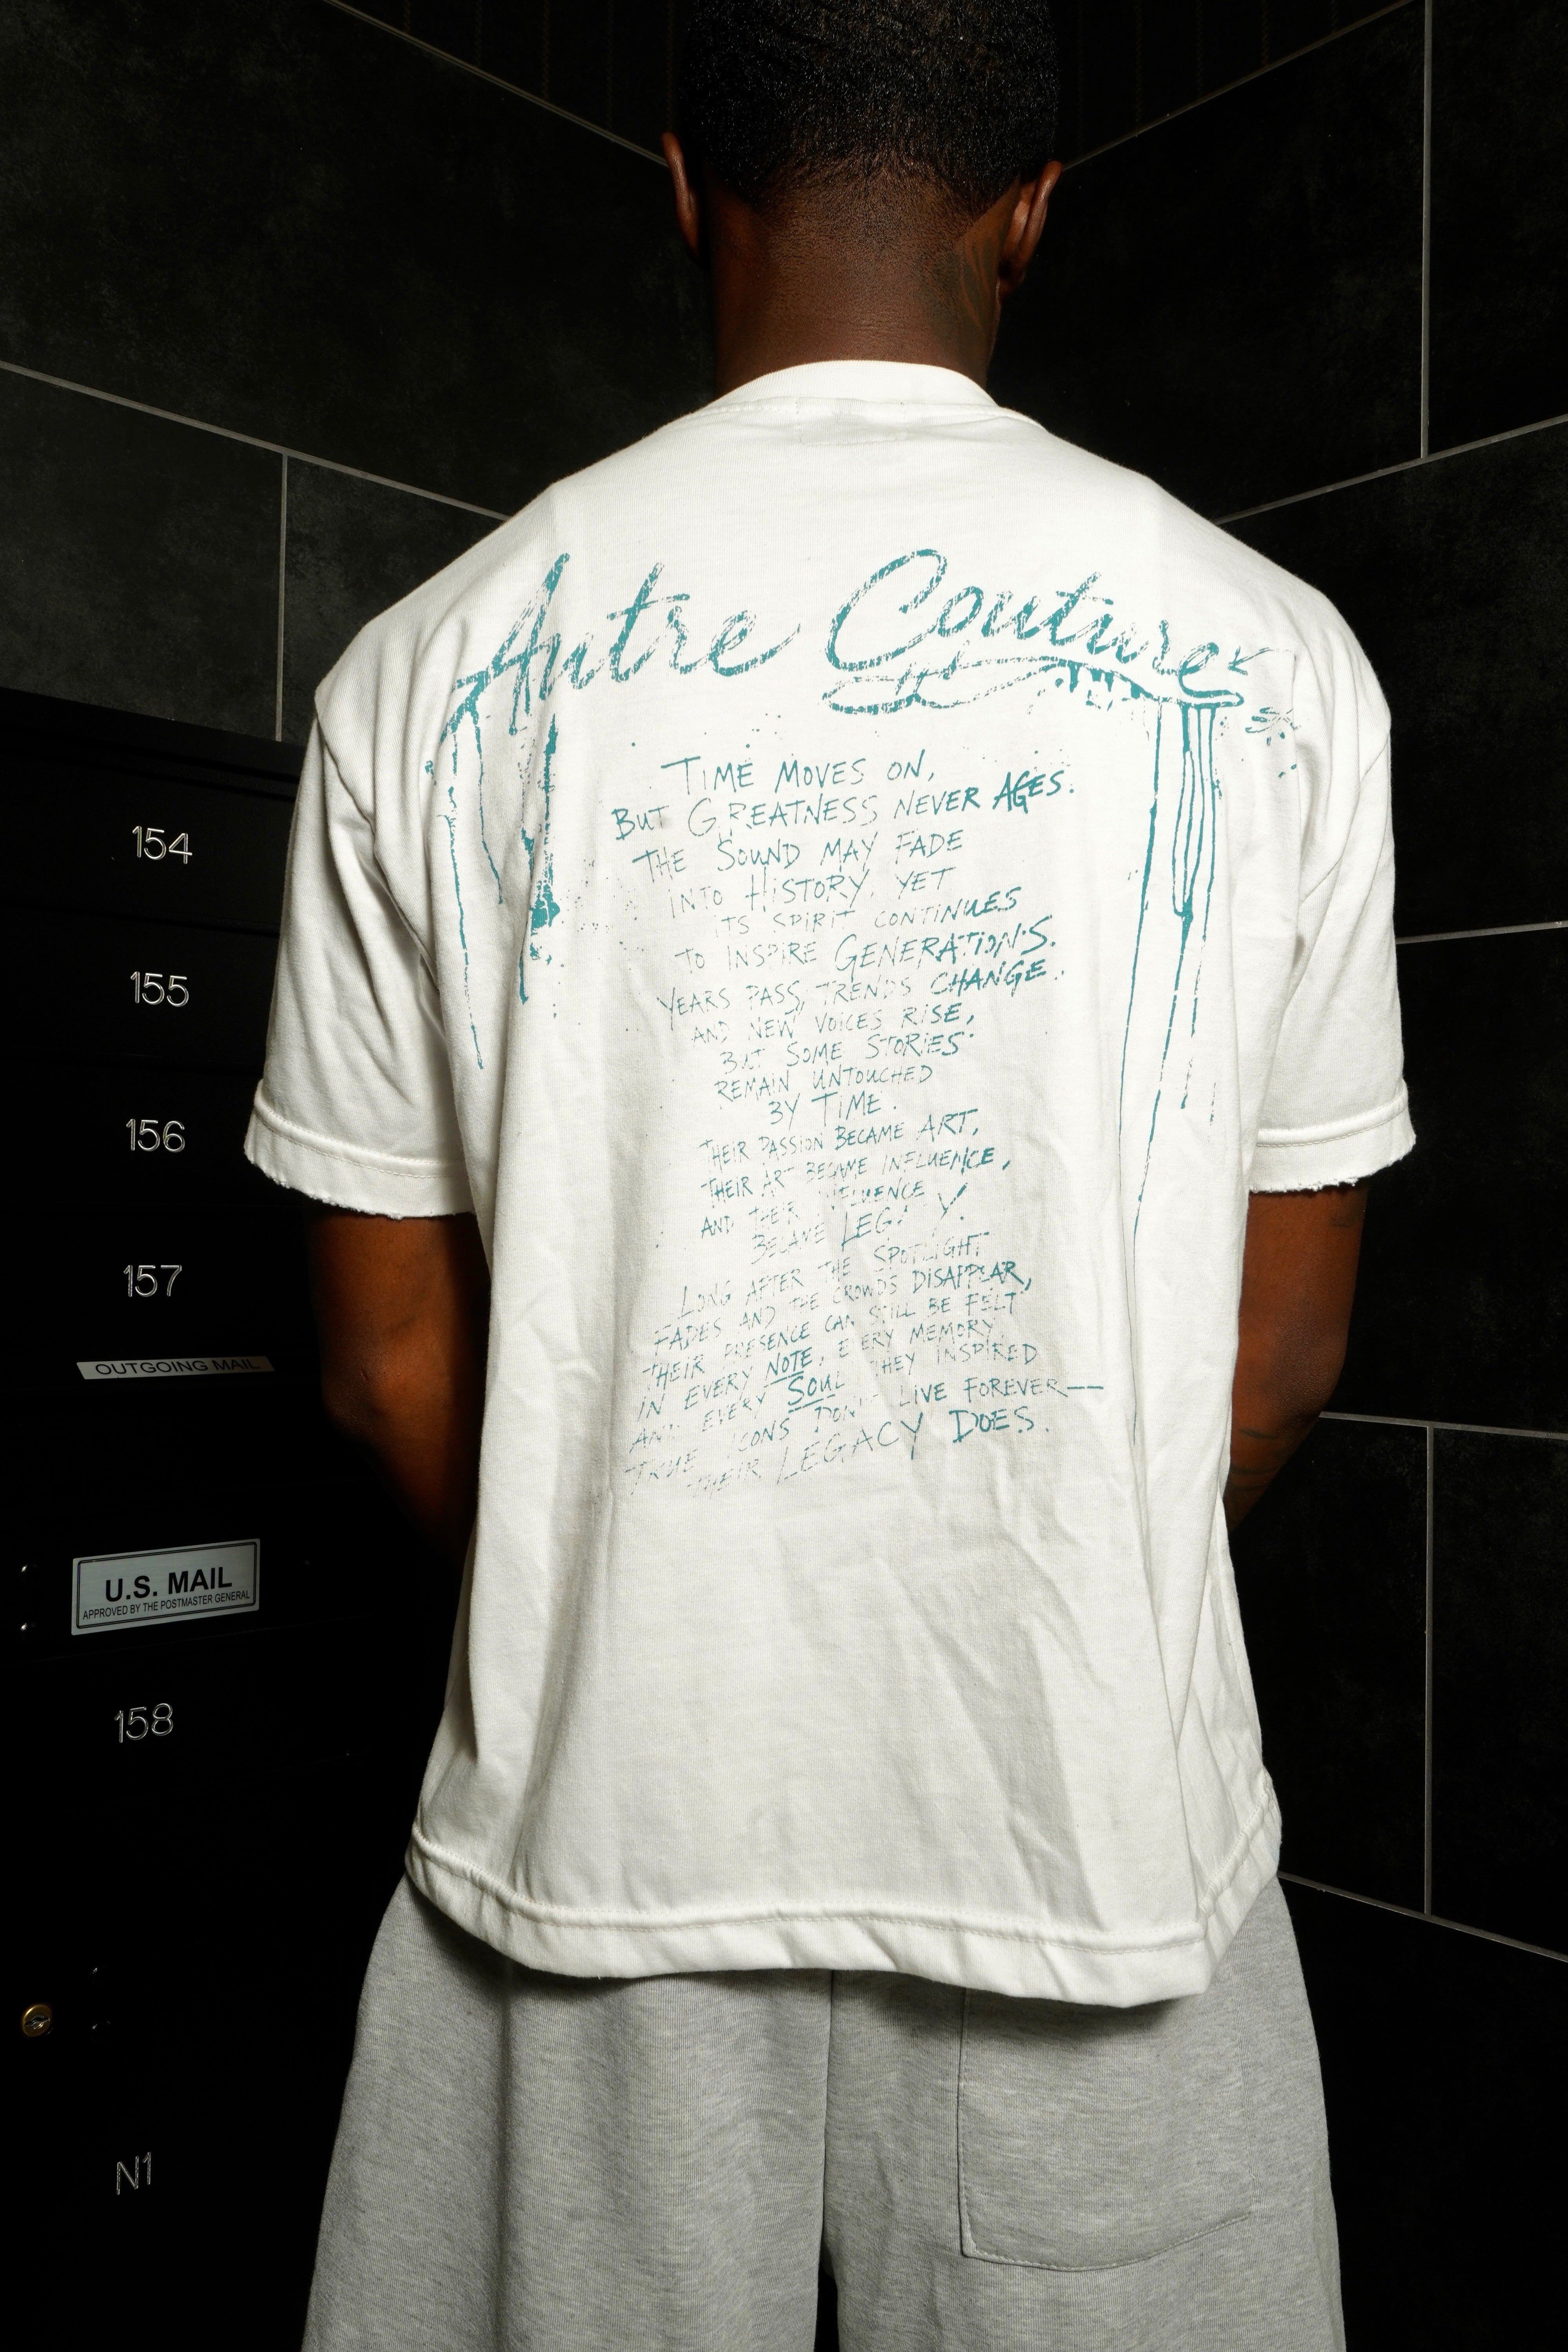 Autre Couture
TIME MOVES ON,
BUT GREATNESS NEVER AGES.
THE SOUND MAY FADE
INTO HISTORY, YET
ITS SPIRIT CONTINUES
TO INSPIRE GENERATIONS.
YEARS PASS, TRENDS CHANGE.
AND NEW VOICES RISE,
BUT SOME STORIES
REMAIN UNTOUCHED
BY TIME.
THEIR PASSION BECAME ART,
THEIR ART BECAME INFLUENCE,
AND THEIR INFLUENCE
BECAME LEGACY.
LONG AFTER THE SPOTLIGHT
FADES AND THE CROWDS DISAPPEAR,
THEIR PRESENCE CAN STILL BE FELT
IN EVERY NOTE, EVERY MEMORY,
AND EVERY SOUL THEY INSPIRED
TRUE ICONS DON'T LIVE FOREVER—
THEIR LEGACY DOES.
154
155
156
157
OUTGOING MAIL
U.S. MAIL
APPROVED BY THE POSTMASTER GENERAL
158
N1